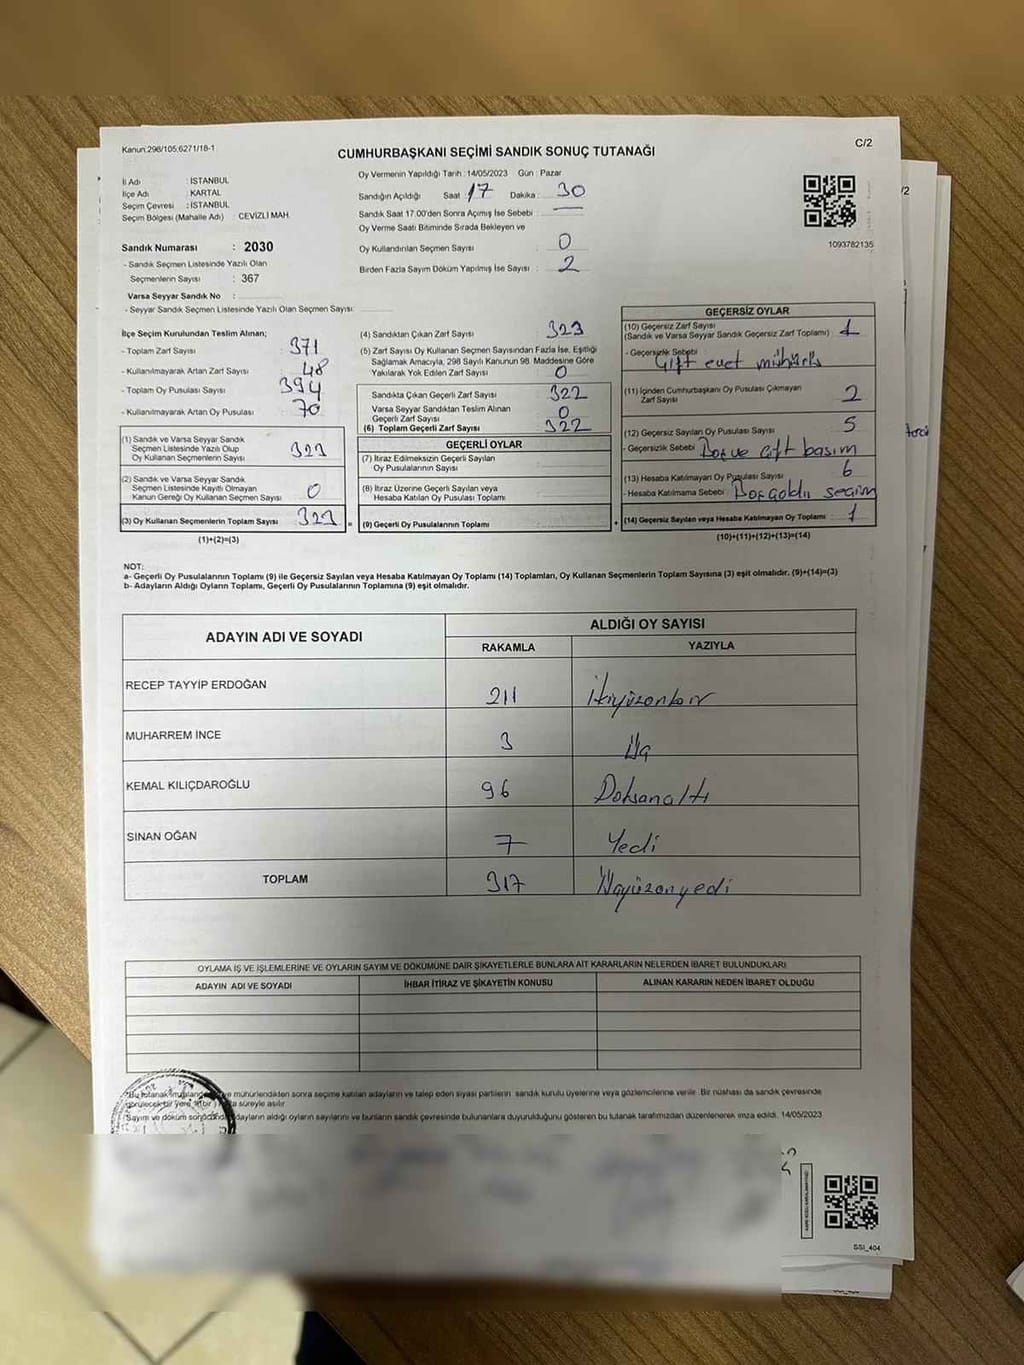 Kanun:298/105;6271/18-1
C/2
CUMHURBAŞKANI SEÇİMİ SANDIK SONUÇ TUTANAĞI
İl Adı : İSTANBUL
İlçe Adı : KARTAL
Seçim Çevresi : İSTANBUL
Seçim Bölgesi (Mahalle Adı) : CEVİZLİ MAH.
Sandık Numarası : 2030
- Sandık Seçmen Listesinde Yazılı Olan
Seçmenlerin Sayısı : 367
Varsa Seyyar Sandık No :
- Seyyar Sandık Seçmen Listesinde Yazılı Olan Seçmen Sayısı:
Oy Vermenin Yapıldığı Tarih :14/05/2023 Gün : Pazar
Sandığın Açıldığı Saat : 17 Dakika : 30
Sandık Saat 17.00'den Sonra Açımış İse Sebebi :
Oy Verme Saati Bitiminde Sırada Bekleyen ve
Oy Kullandırılan Seçmen Sayısı : 0
Birden Fazla Sayım Döküm Yapılmış İse Sayısı : 2
1093782135
İlçe Seçim Kurulundan Teslim Alınan;
- Toplam Zarf Sayısı : 371
- Kullanılmayarak Artan Zarf Sayısı : 48
- Toplam Oy Pusulası Sayısı : 394
- Kullanılmayarak Artan Oy Pusulası : 70
(1) Sandık ve Varsa Seyyar Sandık
Seçmen Listesinde Yazılı Olup
Oy Kullanan Seçmenlerin Sayısı 323
(2) Sandık ve Varsa Seyyar Sandık
Seçmen Listesinde Kayıtlı Olmayan
Kanun Gereği Oy Kullanan Seçmen Sayısı 0
(3) Oy Kullanan Seçmenlerin Toplam Sayısı 323
(1)+(2)=(3)
(4) Sandıktan Çıkan Zarf Sayısı : 323
(5) Zarf Sayısı Oy Kullanan Seçmen Sayısından Fazla İse, Eşitliği
Sağlamak Amacıyla, 298 Sayılı Kanunun 98. Maddesine Göre
Yakılarak Yok Edilen Zarf Sayısı : 0
Sandıkta Çıkan Geçerli Zarf Sayısı : 322
Varsa Seyyar Sandıktan Teslim Alınan
Geçerli Zarf Sayısı : 0
(6) Toplam Geçerli Zarf Sayısı : 322
GEÇERLİ OYLAR
(7) İtiraz Edilmeksizin Geçerli Sayılan
Oy Pusulalarının Sayısı :
(8) İtiraz Üzerine Geçerli Sayılan veya
Hesaba Katılan Oy Pusulası Toplamı :
= (9) Geçerli Oy Pusulalarının Toplamı :
GEÇERSİZ OYLAR
(10) Geçersiz Zarf Sayısı
(Sandık ve Varsa Seyyar Sandık Geçersiz Zarf Toplamı) : 1
- Geçersizlik Sebebi
Çift evet mühürlü
(11) İçinden Cumhurbaşkanı Oy Pusulası Çıkmayan
Zarf Sayısı : 2
(12) Geçersiz Sayılan Oy Pusulası Sayısı : 5
- Geçersizlik Sebebi : Boş ve çift basım
(13) Hesaba Katılmayan Oy Pusulası Sayısı : 6
- Hesaba Katılmama Sebebi :
+ (14) Geçersiz Sayılan veya Hesaba Katılmayan Oy Toplamı : 1
(10)+(11)+(12)+(13)=(14)
NOT:
a- Geçerli Oy Pusulalarının Toplamı (9) ile Geçersiz Sayılan veya Hesaba Katılmayan Oy Toplamı (14) Toplamları, Oy Kullanan Seçmenlerin Toplam Sayısına (3) eşit olmalıdır. (9)+(14)=(3)
b- Adayların Aldığı Oyların Toplamı, Geçerli Oy Pusulalarının Toplamına (9) eşit olmalıdır.
ADAYIN ADI VE SOYADI
ALDIĞI OY SAYISI
RAKAMLA YAZIYLA
RECEP TAYYİP ERDOĞAN 211 İkiyüzonbir
MUHARREM İNCE 3 Üç
KEMAL KILIÇDAROĞLU 96 Doksanaltı
SİNAN OĞAN 7 Yedi
TOPLAM 317 Üçyüzonyedi
OYLAMA İŞ VE İŞLEMLERİNE VE OYLARIN SAYIM VE DÖKÜMÜNE DAİR ŞİKAYETLERLE BUNLARA AİT KARARLARIN NELERDEN İBARET BULUNDUKLARI
ADAYIN ADI VE SOYADI İHBAR İTİRAZ VE ŞİKAYETİN KONUSU ALINAN KARARIN NEDEN İBARET OLDUĞU
mühürlendikten sonra seçime katılan adayların ve talep eden siyasi partilerin sandık kurulu üyelerine veya gözlemcilerine verilir. Bir nüshası da sandık çevresinde
süreyle asılır.
Sayım ve döküm adayların aldığı oyların sayılarını ve bunların sandık çevresinde bulunanlara duyurulduğunu gösteren bu tutanak tarafımızdan düzenlenerek imza edildi. 14/05/2023
SSİ_404